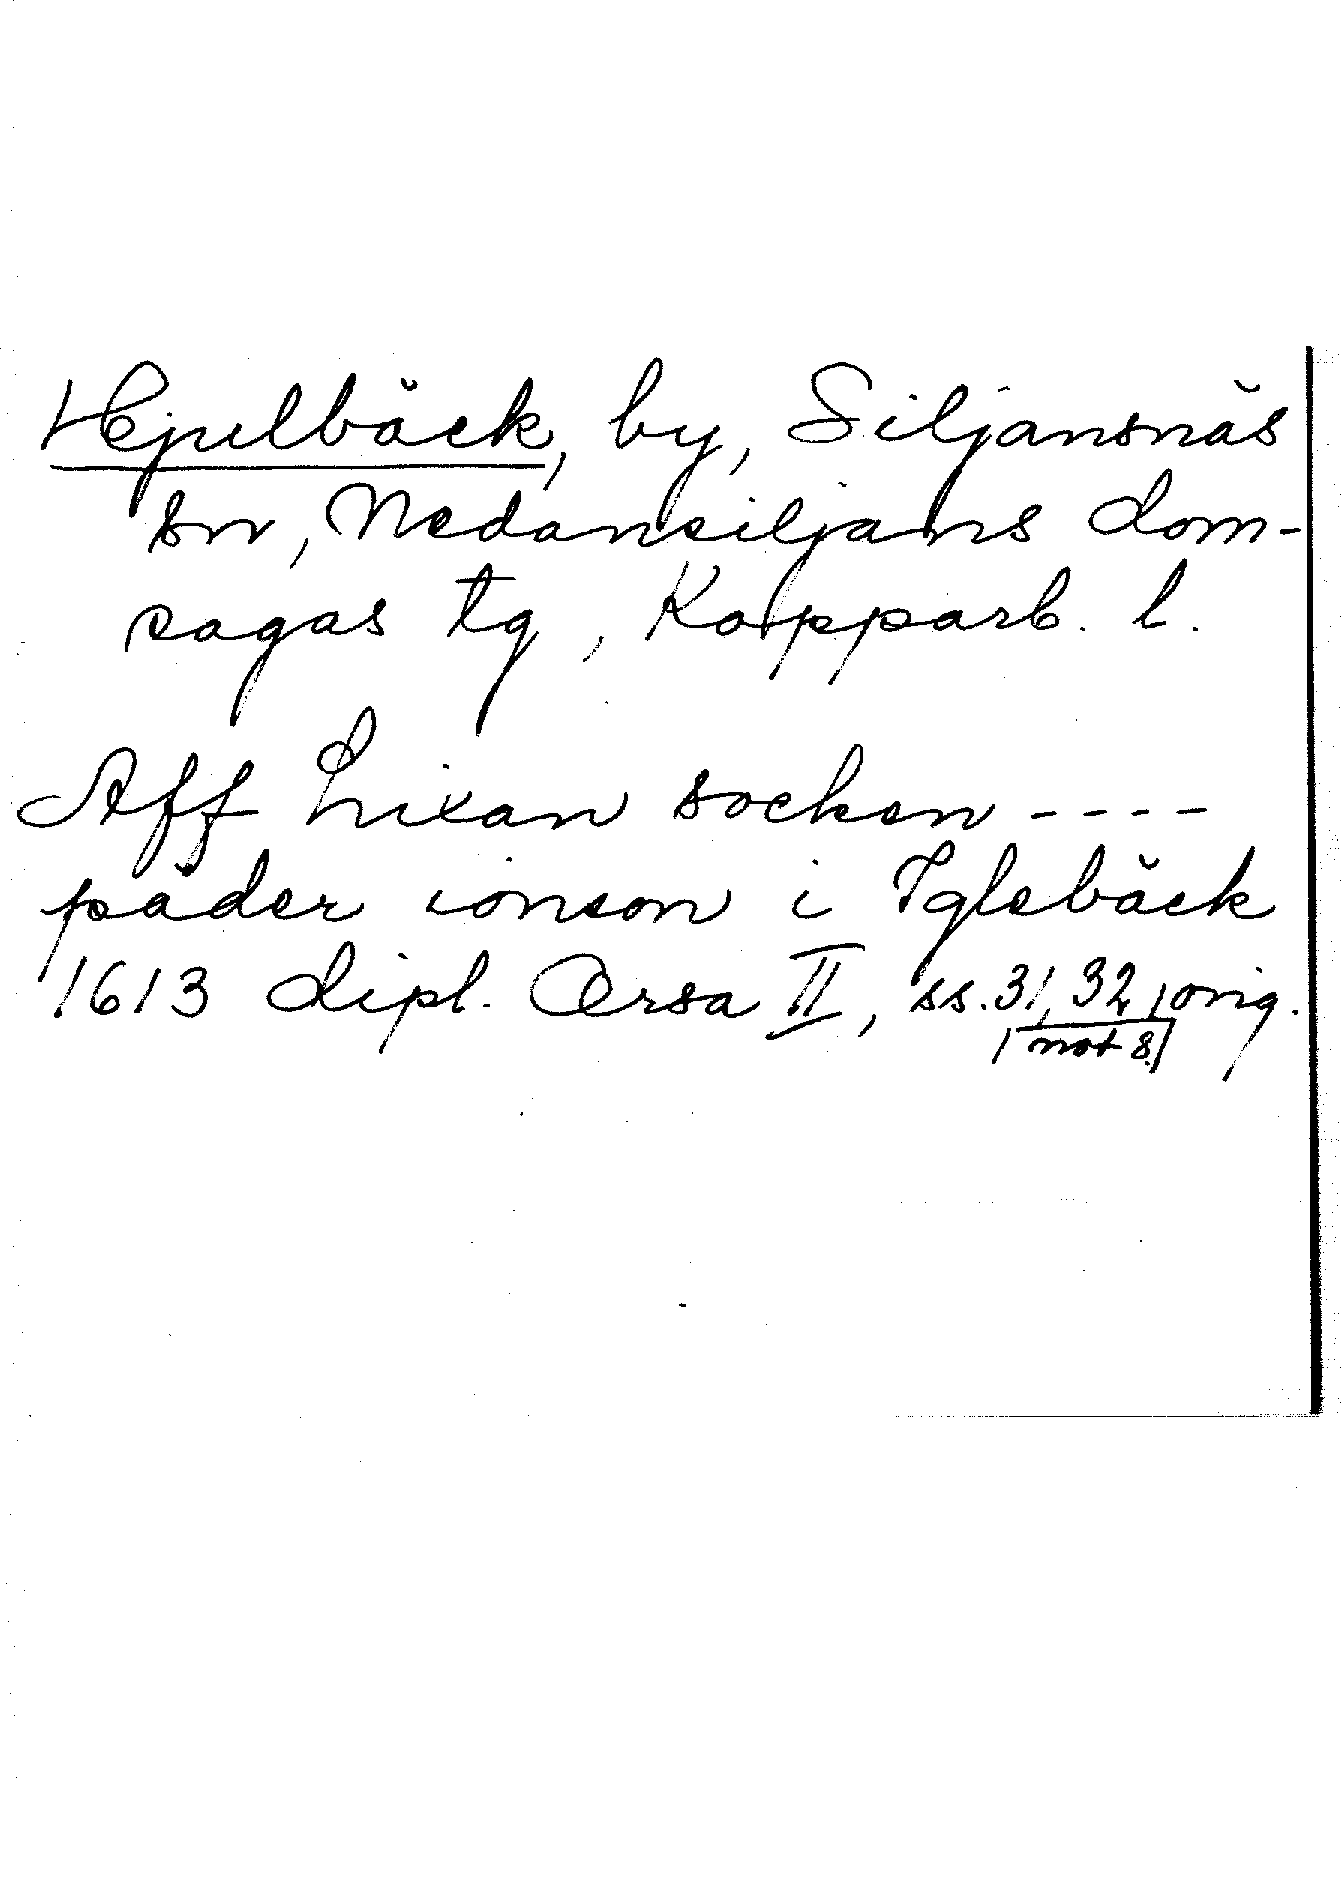 Hjulbäck, by, Siljansnäs
sn, Nedansiljans dom-
sagas tg, Kopparb. l.
Aff Lixan socken ----
päder ionson i Iglebäck
1613 dipl. Orsa II, ss. 31, 32, orig.
not 8